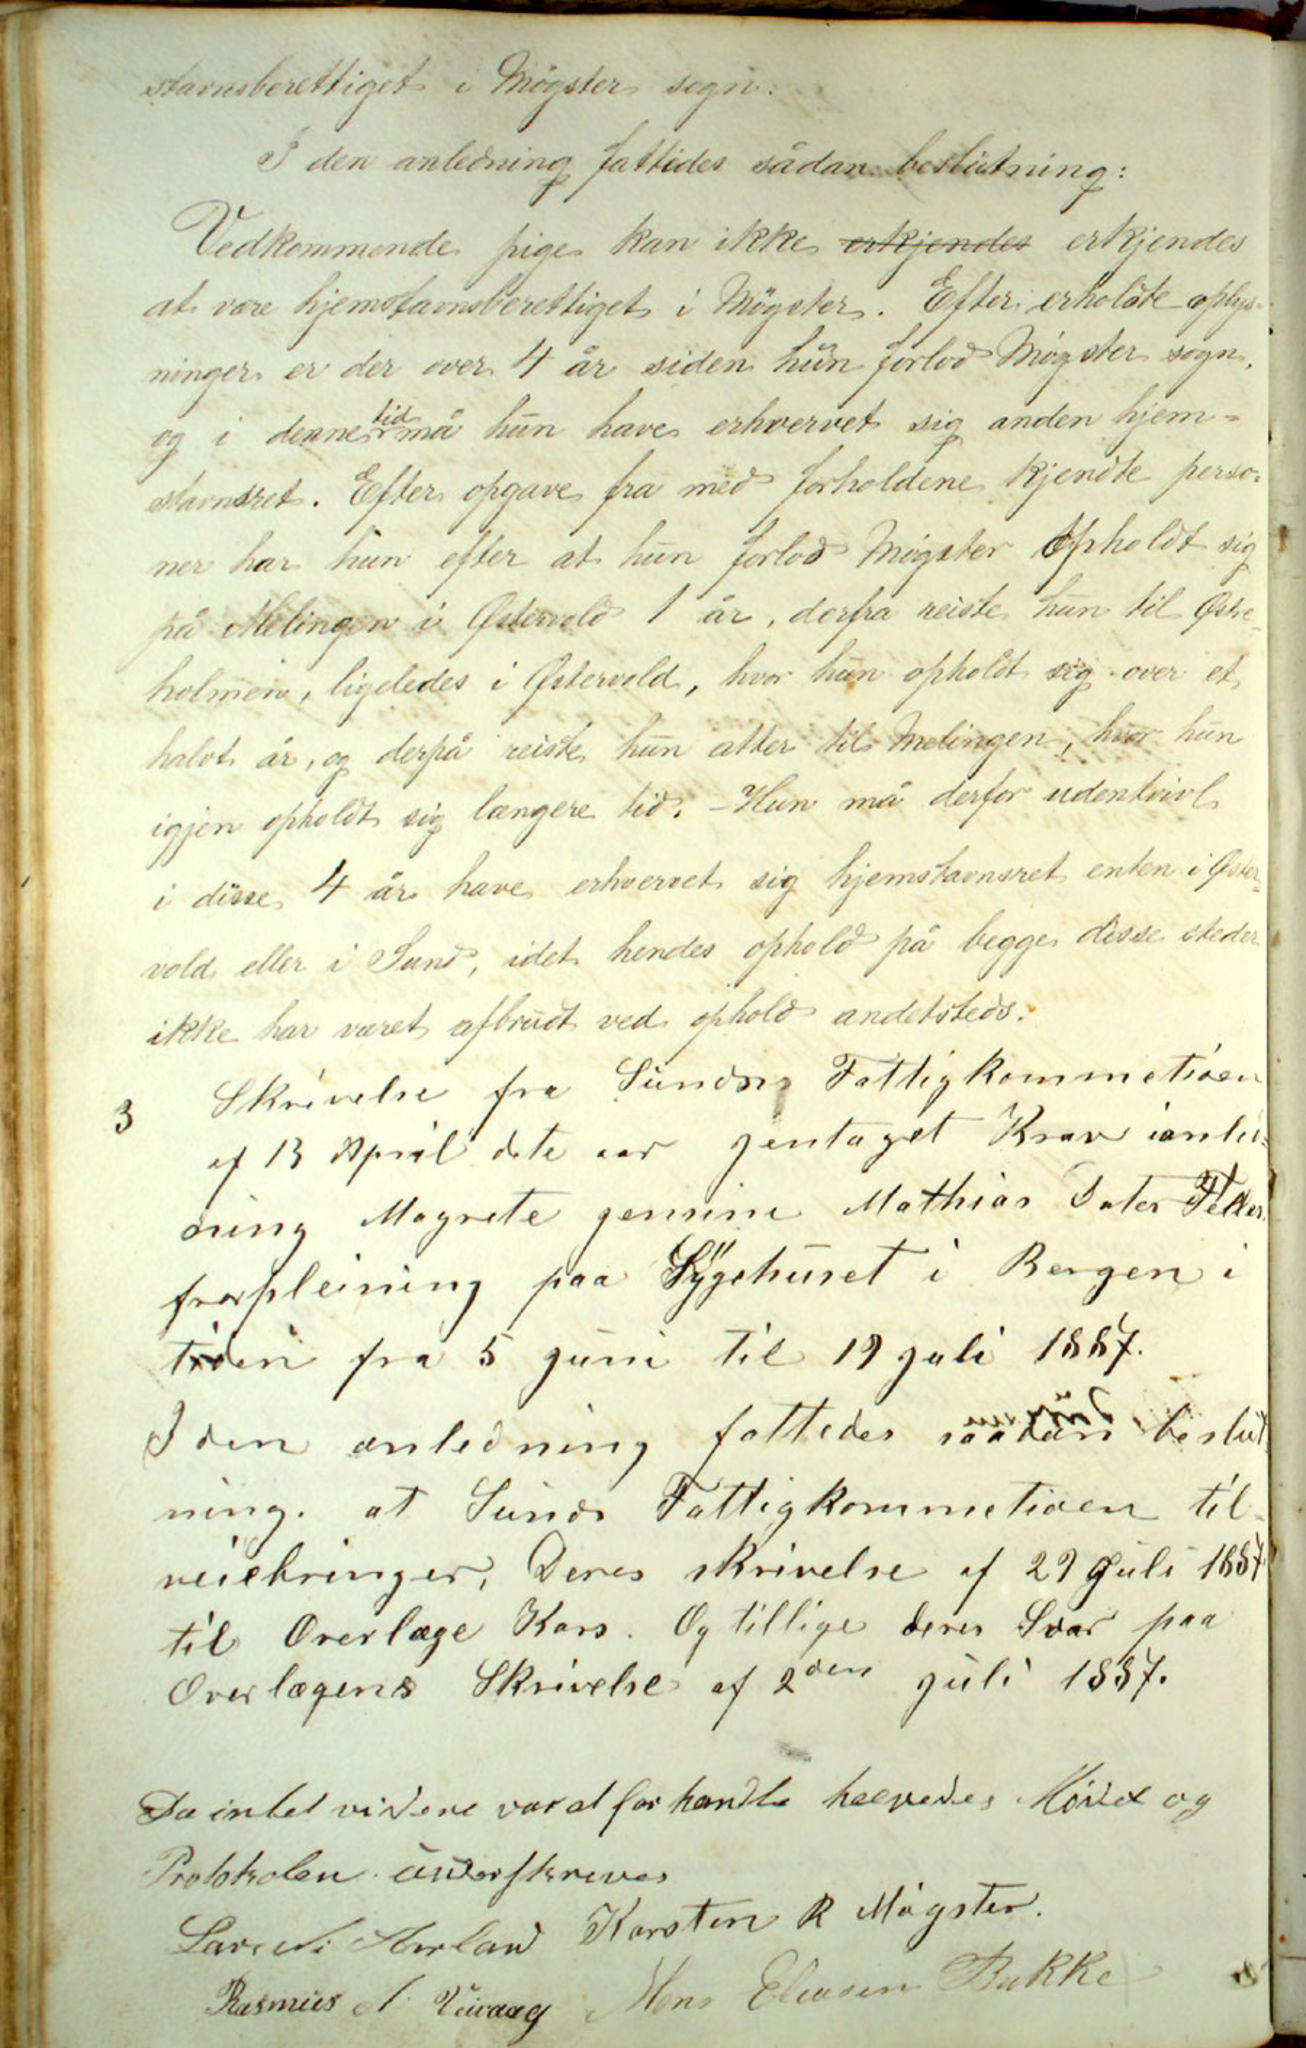 stavnsberettiget i Møgster sogn.
I den anledning fattedes sådan beslutning:
Vedkommende pige kan ikke erkjendes erkjendes
at være hjemstavnsberettiget i Møgster. Efter erholdte oplys-
ninger er der over 4 år siden hun forlod Møgster sogn,
og i denne tid må hun have erhvervet sig anden hjem-
stavnsret. Efter opgave fra med forholdene kjendte perso-
ner har hun efter at hun forlod Møgster opholdt sig
på Melingen i Østervold 1 år, derfra reiste hun til Østre-
holmen, ligeledes i Østervold, hvor hun opholdt sig over et
halvt år, og derpå reiste hun atter til Melingen, hvor hun
igjen opholdt sig længere tid. - Hun må derfor udentvivl
i disse 4 år have erhvervet sig hjemstavnsret enten i Øster-
vold eller i Sund, idet hendes ophold på begge disse steder
ikke har været afbrudt ved ophold andetsteds.
3 Skrivelse fra Sunds Fattigkommetion
af 13 April dete aar gentaget Krav ianled-
ning Magrete gemine Mathias Dater
forpleining paa Sygehuset i Bergen i
tiden fra 5 juni til 19 juli 1887.
I den anledning fattedes saadan beslut
ning. at Sunds Fattigkommetion til-
veiebringer, Deres skrivelse af 29 Juli 1887
til Overlæge Kars. Og tillige deres Svar paa
Overlægens Skrivelse af 2den juli 1887.
Da intet videre var at forhandle hævedes Mødet og
Protokolen underskreves
Lars Karsten R Møgster.
Rasmus A Mons Eliasen Bakke